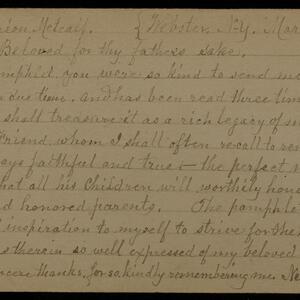 rion Metcalf. { Webster, N.Y. Mar
Beloved for thy fathers sake.
amphlet, you were so kind to send me
n due time, and has been read three time
shall treasure it as a rich legacy of
Friend, whom I shall often recall to
ays faithful and true; — the perfect
hat all his children will worthily hono
nd honored parents. The pamphle
inspiration to myself to strive for the
s therein so well expressed of my beloved
ncere thanks, for so kindly remembering me. Ne